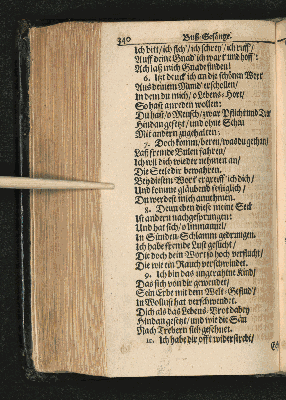 340 Buß-Gesänge.
Ich bitt / ich fleh' / ich schrey / ich ruff /
Auff deine Gnad' ich wart und hoff:
Ach laß mich Gnade finden!
6. Itzt denck' ich an die schönen Wort
Aus deinem Mund' erschollen /
In dem du mich / o Lebens-Hort /
So hast anreden wollen:
Du hast / o Mensch / zwar Pflicht und
Hindan gesetzt / und ohne Scheu
Mit andern zugehalten:
7. Doch komm / bereu / was du gethan /
Laß fremde Bulen fahren /
Ich will dich wieder nehmen an /
Die Seele dir bewahren.
Bey diesem Wort' ergreiff' ich dich /
Und komme gläubend
Du werdest mich annehmen.
8. Denn eben diese meine Seel
Ist andern nachgesprungen:
Und hat sich / o Immanuel /
In Sünden-Schlamm gedrungen.
Ich habe fremde Lust gesucht /
Die doch dein Wort so hoch verflucht /
Die wie ein Rauch verschwindet.
9. Ich bin das ungerathne Kind /
Das sich von dir gewendet /
Sein Erbe mit dem Welt-Gesind /
In Wollust hat verschwendet:
Dich als das Lebens-Brot dabey
Hindangesetzt / und wie die Säu
Nach Trebern sich gesehnet.
10. Ich habe dir offt widerstrebt /